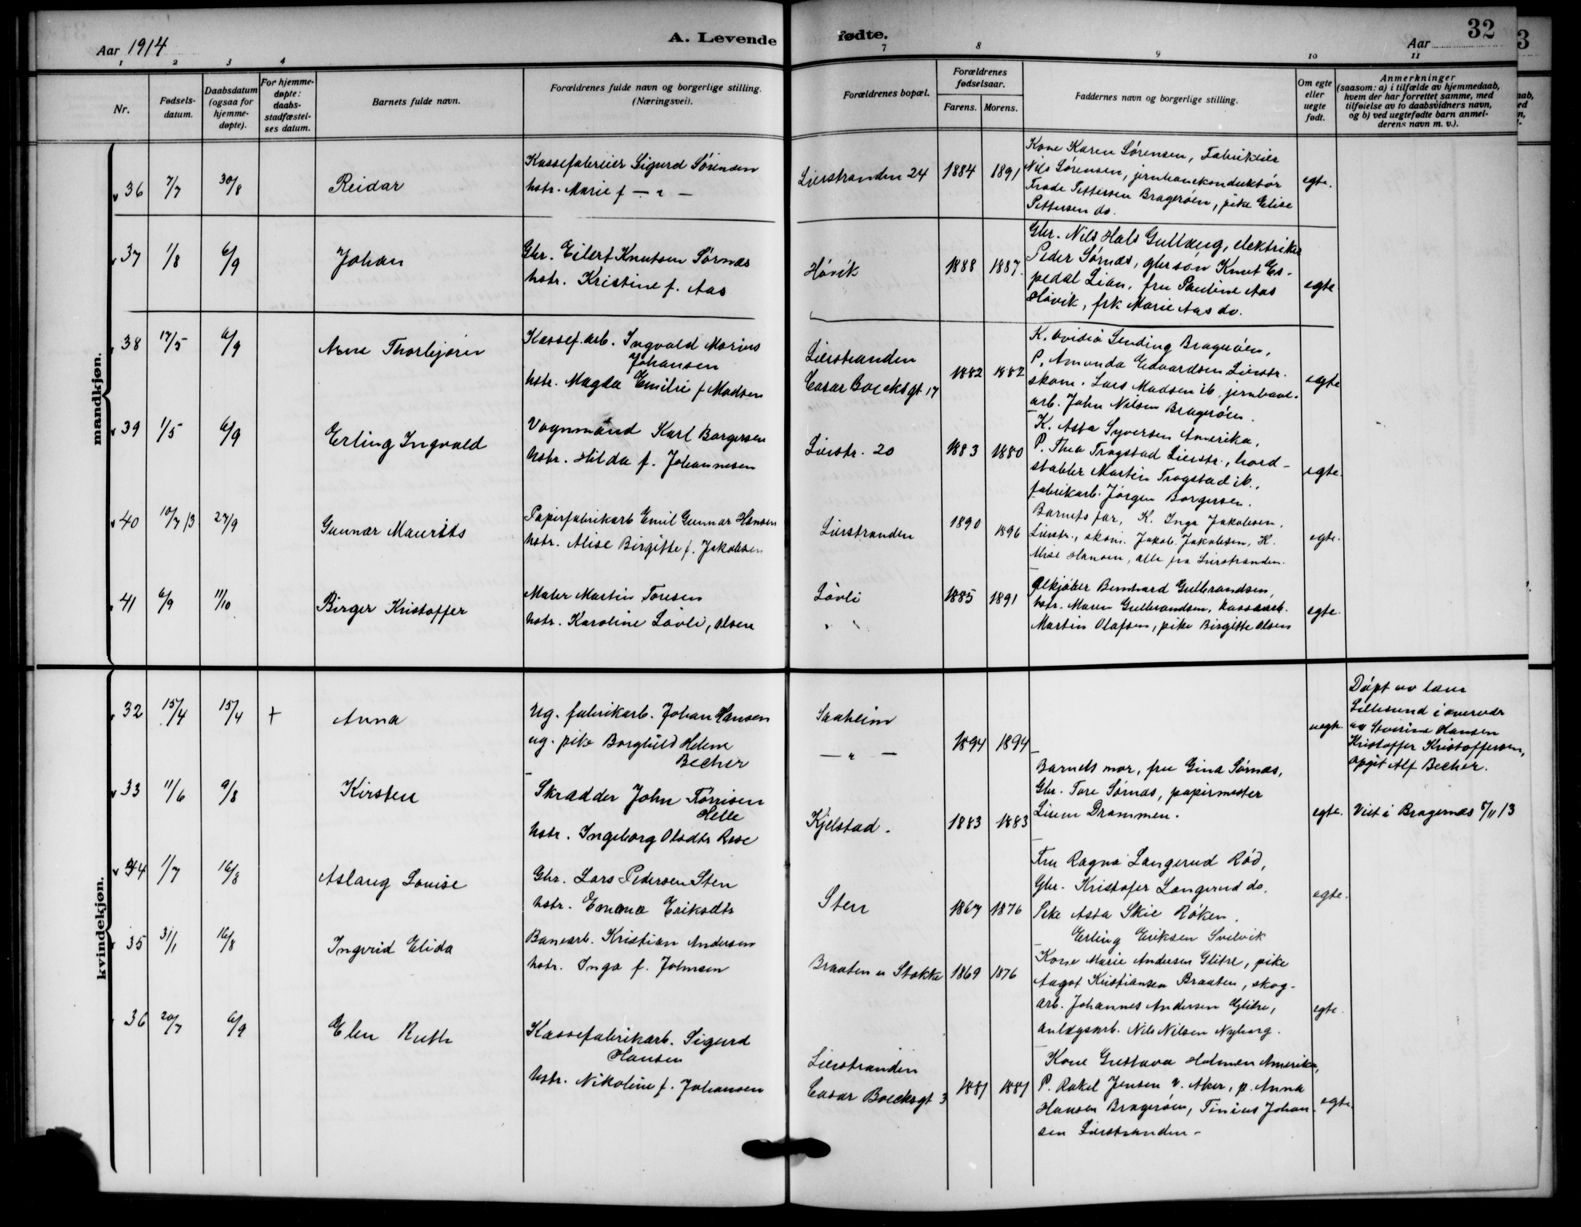 Aar 1914
A. Levende fødte.
32
Aar
1 2 3 4 7 8 9 10 11
Nr.
Fødsels-
datum.
Daabsdatum
(ogsaa for
hjemme-
døpte).
For hjemme-
døpte:
daabs-
stadfæstel-
ses datum.
Barnets fulde navn.
Forældrenes fulde navn og borgerlige stilling.
(Næringsvei).
Forældrenes bopæl.
Forældrenes
fødselsaar.
Farens. Morens.
Faddernes navn og borgerlige stilling.
Om egte
eller
uegte
født.
Anmerkninger
(saasom: a) i tilfælde av hjemmedaab,
hvem der har forrettet samme, med
tilføielse av to daabsvidners navn,
og b) ved uegtefødte barn anmel-
derens navn m. v.).
mandkjøn.
36 7/7 30/8 Reidar
Kassefabrikeier Sigurd Sörensen
hstr. Marie f — " —
Lierstranden 24 1884 1891
Kone Karen Sörensen, Fabrikeier
Nils Sörensen, jernbanekonduktör
Frode Pettersen Bragerøen, pike Elise
Pettersen do.
egte.
37 1/8 6/9 Johan
Gbr. Eilert Knutsen Sørnæs
hstr. Kristine f. Aas
Høvik 1888 1887
Gbr. Nils Hals Gullaug, elektriker
Peder Sørnæs, gbrsøn Knut Es-
pedal Lian, fru Pauline Aas
Høvik, frk Marie Aas do.
egte
38 17/5 6/9 Arne Thorbjørn
Kassef.arb. Ingvald Marius
Johansen
hstr. Magda Emilie f. Madsen
Lierstranden
Cæsar Boecksgt 17 1882 1882
K. Ovidia Sending Bragerøen,
P. Amunda Edvardsen Lierstr.
skom. Lars Madsen ib. jernbane-
arb. John Nilsen Bragerøen.
egte
39 1/5 6/9 Erling Ingvald
Vognmand Karl Borgersen
hstr. Hilda f. Johannesen
Lierstr. 20 1883 1880
K. Asta Syversen Amerika,
P. Thea Trogstad Lierstr., bord-
stabler Martin Trogstad ib.,
fabrikarb. Jørgen Borgersen.
egte.
40 10/7 13 27/9 Gunnar Maurits
Papirfabrikarb Emil Gunnar Hansen
hstr. Alise Birgitte f. Jakobsen
Lierstranden 1890 1896
Barnets far, K. Inga Jakobsen
Lierstr., skom. Jakob Jakobsen, K.
Hansen, alle fra Lierstranden.
egte.
41 6/9 11/10 Birger Kristoffer
Maler Martin Toresen
hstr. Karoline Løvli, Olsen
Løvli
" " 1885 1891
Opkjøber Bernhard Gulbrandsen,
hstr. Maren Gulbrandsen, kassearb.
Martin Olafsen, pike Birgitte Olsen
egte.
kvindekjøn.
32 15/4 15/4 + Anna
Ug. fabrikarb. Johan Hansen
ug. pike Borghild Helene
Becher
Saaheim
— " — 1894 1894
uegte
Døpt av
Lillesund i overvær
av Severine Hansen
Kristoffer Kristoffersen,
opgit Alf Becher.
33 11/6 9/8 Kirsten
Skrædder John Tørrisen
Helle
hstr. Ingeborg Olsdtr Rose
Kjelstad. 1883 1883
Barnets mor, fru Gina Sørnæs,
Gbr. Tore Sørnæs, papirmester
Liem Drammen.
egte. Viet i Bragernæs 7/11 13
34 1/7 16/8 Aslaug Louise
Gbr. Lars Pedersen Sten
hstr. Emma Eriksdtr
Sten 1867 1876
Fru Ragna Langerud Rød,
Gbr. Kristofer Langerud do.
Pike Asta Skie Røken.
Erling Eriksen Svelvik
egte.
35 31/1 16/8 Ingerid Elida
Banearb. Kristian Andersen
hstr. Inga f. Johnsen
Braaten u Stokke 1869 1876
Kone Marie Andersen Glitre, pike
Aagot Kristiansen Braaten, skog-
arb. Johannes Andersen Glitre,
anlægsarb. Nils Nilsen Nyborg.
egte.
36 20/7 6/9 Elen Ruth
Kassefabrikarb. Sigurd
Hansen
hstr. Nikoline f. Johansen
Lierstranden
Cæsar Boecksgt 3 1881 1881
Kone Gustava Holmen Amerika,
P. Rakel Jensen v. Aker, p. Anna
Hansen Bragerøen, Tinius Johan-
sen Lierstranden –
egte.